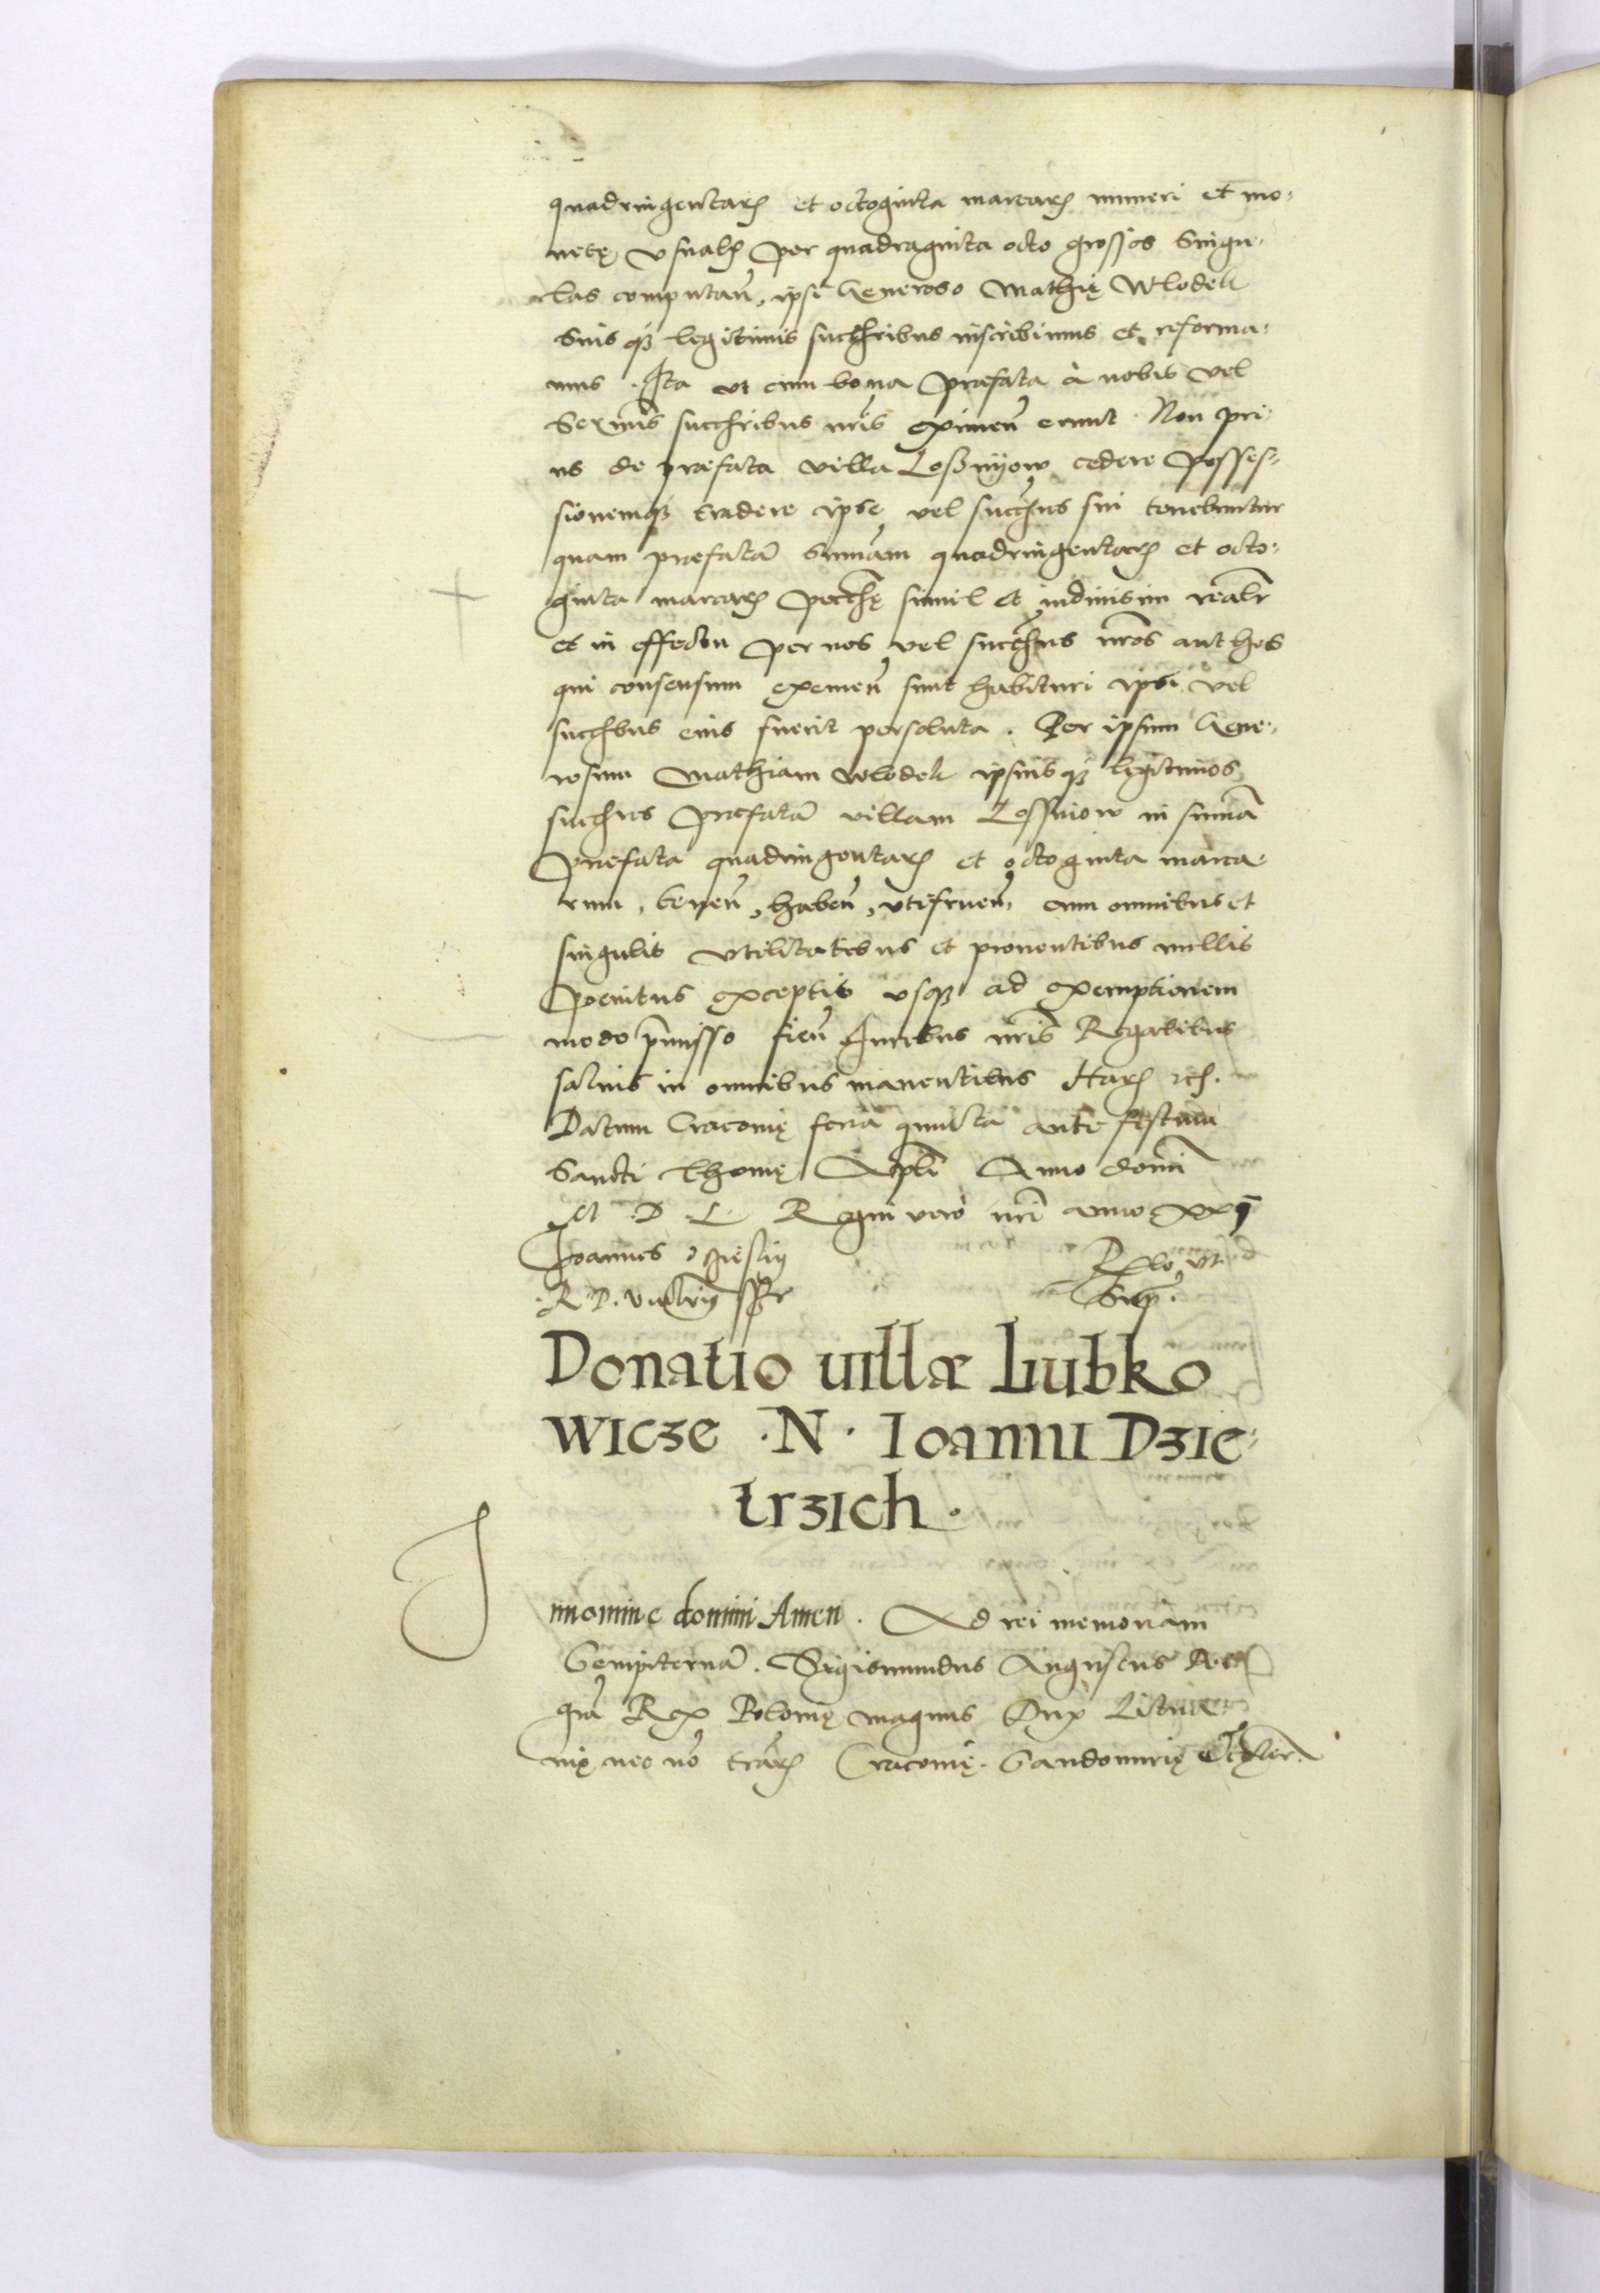 quadringentarꝝ et octoginta marcarꝝ numeri et mo-
netę usualꝭ per quadraginta octo grossos singu-
las computań, ipsi Generoso Mathię Wlodek
suisqꝫ legitimis succꝭribus inscribimus et reforma-
mus. Ita ut cum bona praefata à nobis vel
Serꝫmis succꝭribus nr̃is eximeń erunt. Non pri-
us de praefata villa Losznyow cedere posses-
sionemqꝫ tradere ipse vel succꝭres sui tenebuntur
quam praefatã summam quadringentarꝝ et octo-
ginta marcarꝝ simul et indivisim realr̃
et in effectu per nos vel succꝭres nr̃os aut hos
qui consensum exemeń sunt habituri ipsi vel
succꝭbus eius fuerit persoluta. Per ipsum Gene-
rosum Mathiam Wlodek ipsiusqꝫ legitimos
succꝭres praefatã villam Lossniow in summã
praefata quadringentarꝝ et octoginta marca-
rum, teneń, habeń, utifrueń, cum omnibus et
singulis utilitatibus et proventibus nullis
penitus exceptis usqꝫ ad exemptionem
modo p̃misso fień Iuribus nr̃is Regalibus
salvis in omnibus manentibus Harꝝ
Datum Cracovię feria quinta ante festum
Sancti Thomę Apl̃i Anno domĩ
M D L Regni vero nr̃i anno XXI
Joannes Oczieski
R P. vicecancꝭ
Rl̃o ut
Sup.
Donatio villæ Liubko
wicze .N. Ioanni Dzie-
trzich.
In nomine domini Amen. Ad rei memoriam
Sempiternã. Sigismundus Augustus Dei
grã Rex Polonię magnus Dux Lituae
nię nec nõ trãrꝝ Cracovię. Sandomirię